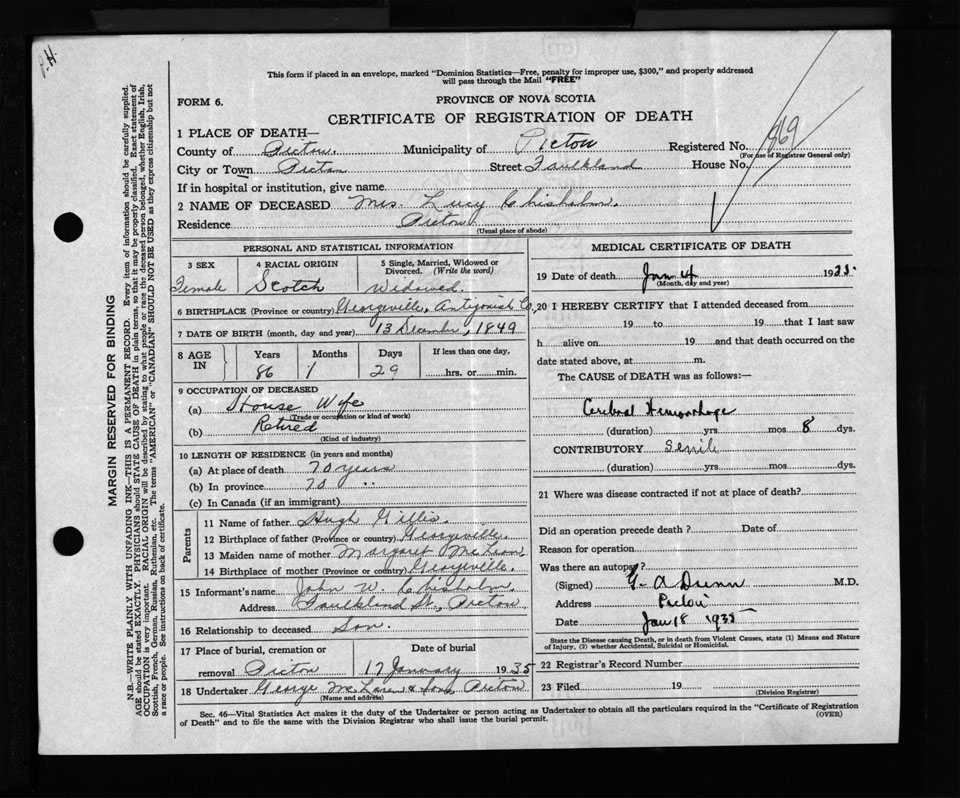 P.H.
This form if placed in an envelope, marked "Dominion Statistics—Free, penalty for improper use, $300," and properly addressed
will pass through the Mail "FREE"
FORM 6.
PROVINCE OF NOVA SCOTIA
CERTIFICATE OF REGISTRATION OF DEATH
1 PLACE OF DEATH—
County of Pictou. Municipality of Pictou Registered No. 869
(For use of Registrar General only)
City or Town Pictou Street Faulkland House No.
If in hospital or institution, give name
2 NAME OF DECEASED Mrs. Lucy Chisholm.
Residence Pictou.
(Usual place of abode)
PERSONAL AND STATISTICAL INFORMATION
3 SEX 4 RACIAL ORIGIN 5 Single, Married, Widowed or Divorced. (Write the word)
Female Scotch Widowed.
6 BIRTHPLACE (Province or country) Georgeville, Antigonish Co,
7 DATE OF BIRTH (month, day and year) 13 December, 1849
8 AGE IN Years Months Days If less than one day,
86 1 29 hrs. or min.
9 OCCUPATION OF DECEASED
(a) House Wife
(Trade or occupation or kind of work)
(b) Retired
(Kind of industry)
10 LENGTH OF RESIDENCE (in years and months)
(a) At place of death 70 years
(b) In province 70 "
(c) In Canada (if an immigrant)
Parents
11 Name of father Hugh Gillis.
12 Birthplace of father (Province or country) Georgeville.
13 Maiden name of mother Margaret McLean
14 Birthplace of mother (Province or country) Georgeville.
15 Informant's name John W. Chisholm.
Address Faulkland St., Pictou
16 Relationship to deceased Son.
17 Place of burial, cremation or Date of burial
removal Pictou 17 January 1935
18 Undertaker George McLaren & Son, Pictou
(Name and address)
MEDICAL CERTIFICATE OF DEATH
19 Date of death Jan 1935.
(Month, day and year)
20 I HEREBY CERTIFY that I attended deceased from
19 to 19 that I last saw
h alive on 19 and that death occurred on the
date stated above, at m.
The CAUSE OF DEATH was as follows:—
Cerebral Hemorrhage
(duration) yrs. mos. 8 dys.
CONTRIBUTORY Senile
(duration) yrs. mos. dys.
21 Where was disease contracted if not at place of death?
Did an operation precede death? Date of
Reason for operation
Was there an autopsy?
(Signed) G. A. Dunn M.D.
Address Pictou
Date Jan 18 1935
State the Disease causing Death, or in death from Violent Causes, state (1) Means and Nature
of Injury, (2) whether Accidental, Suicidal or Homicidal.
22 Registrar's Record Number
23 Filed 19
(Division Registrar)
Sec. 46—Vital Statistics Act makes it the duty of the Undertaker or person acting as Undertaker to obtain all the particulars required in the "Certificate of Registration
of Death" and to file the same with the Division Registrar who shall issue the burial permit.
(OVER)
MARGIN RESERVED FOR BINDING
N.B.—WRITE PLAINLY WITH UNFADING INK—THIS IS A PERMANENT RECORD. Every item of information should be carefully supplied.
AGE should be stated EXACTLY. PHYSICIANS should STATE CAUSE OF DEATH in plain terms, so that it may be properly classified. Exact statement of
OCCUPATION is very important. RACIAL ORIGIN will be described by stating to what people or race the deceased person belonged, whether English, Irish,
Scottish, French, German, Russian, Ruthenian, etc. The terms "AMERICAN" or "CANADIAN" SHOULD NOT BE USED as they express citizenship but not
a race or people. See instructions on back of certificate.